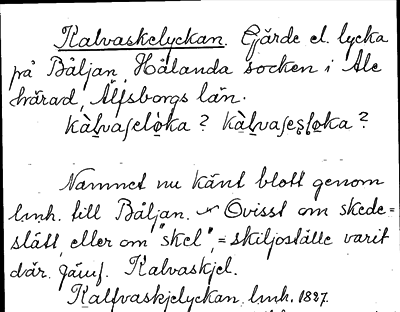 Kalvaskelyckan. Gärde el. lycka
på Båljan, Hålanda socken i Ale
härad, Älfsborgs län.
kàlvaſelo̩ka? kàlvaſeslo̩ka?
Namnet nu känt blott genom
lmh. till Båljan. Ovisst om skede=
slätt, eller om "skel", = skiljoställe varit
där. Jämf. Kalvaskjel.
Kalfvaskjelyckan lmh. 1827.